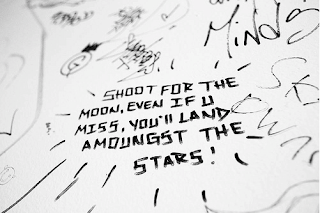 Minds
SHOOT FOR THE
MOON, EVEN IF U
MISS, YOU'll LAND
AMOUNGST THE
STARS!